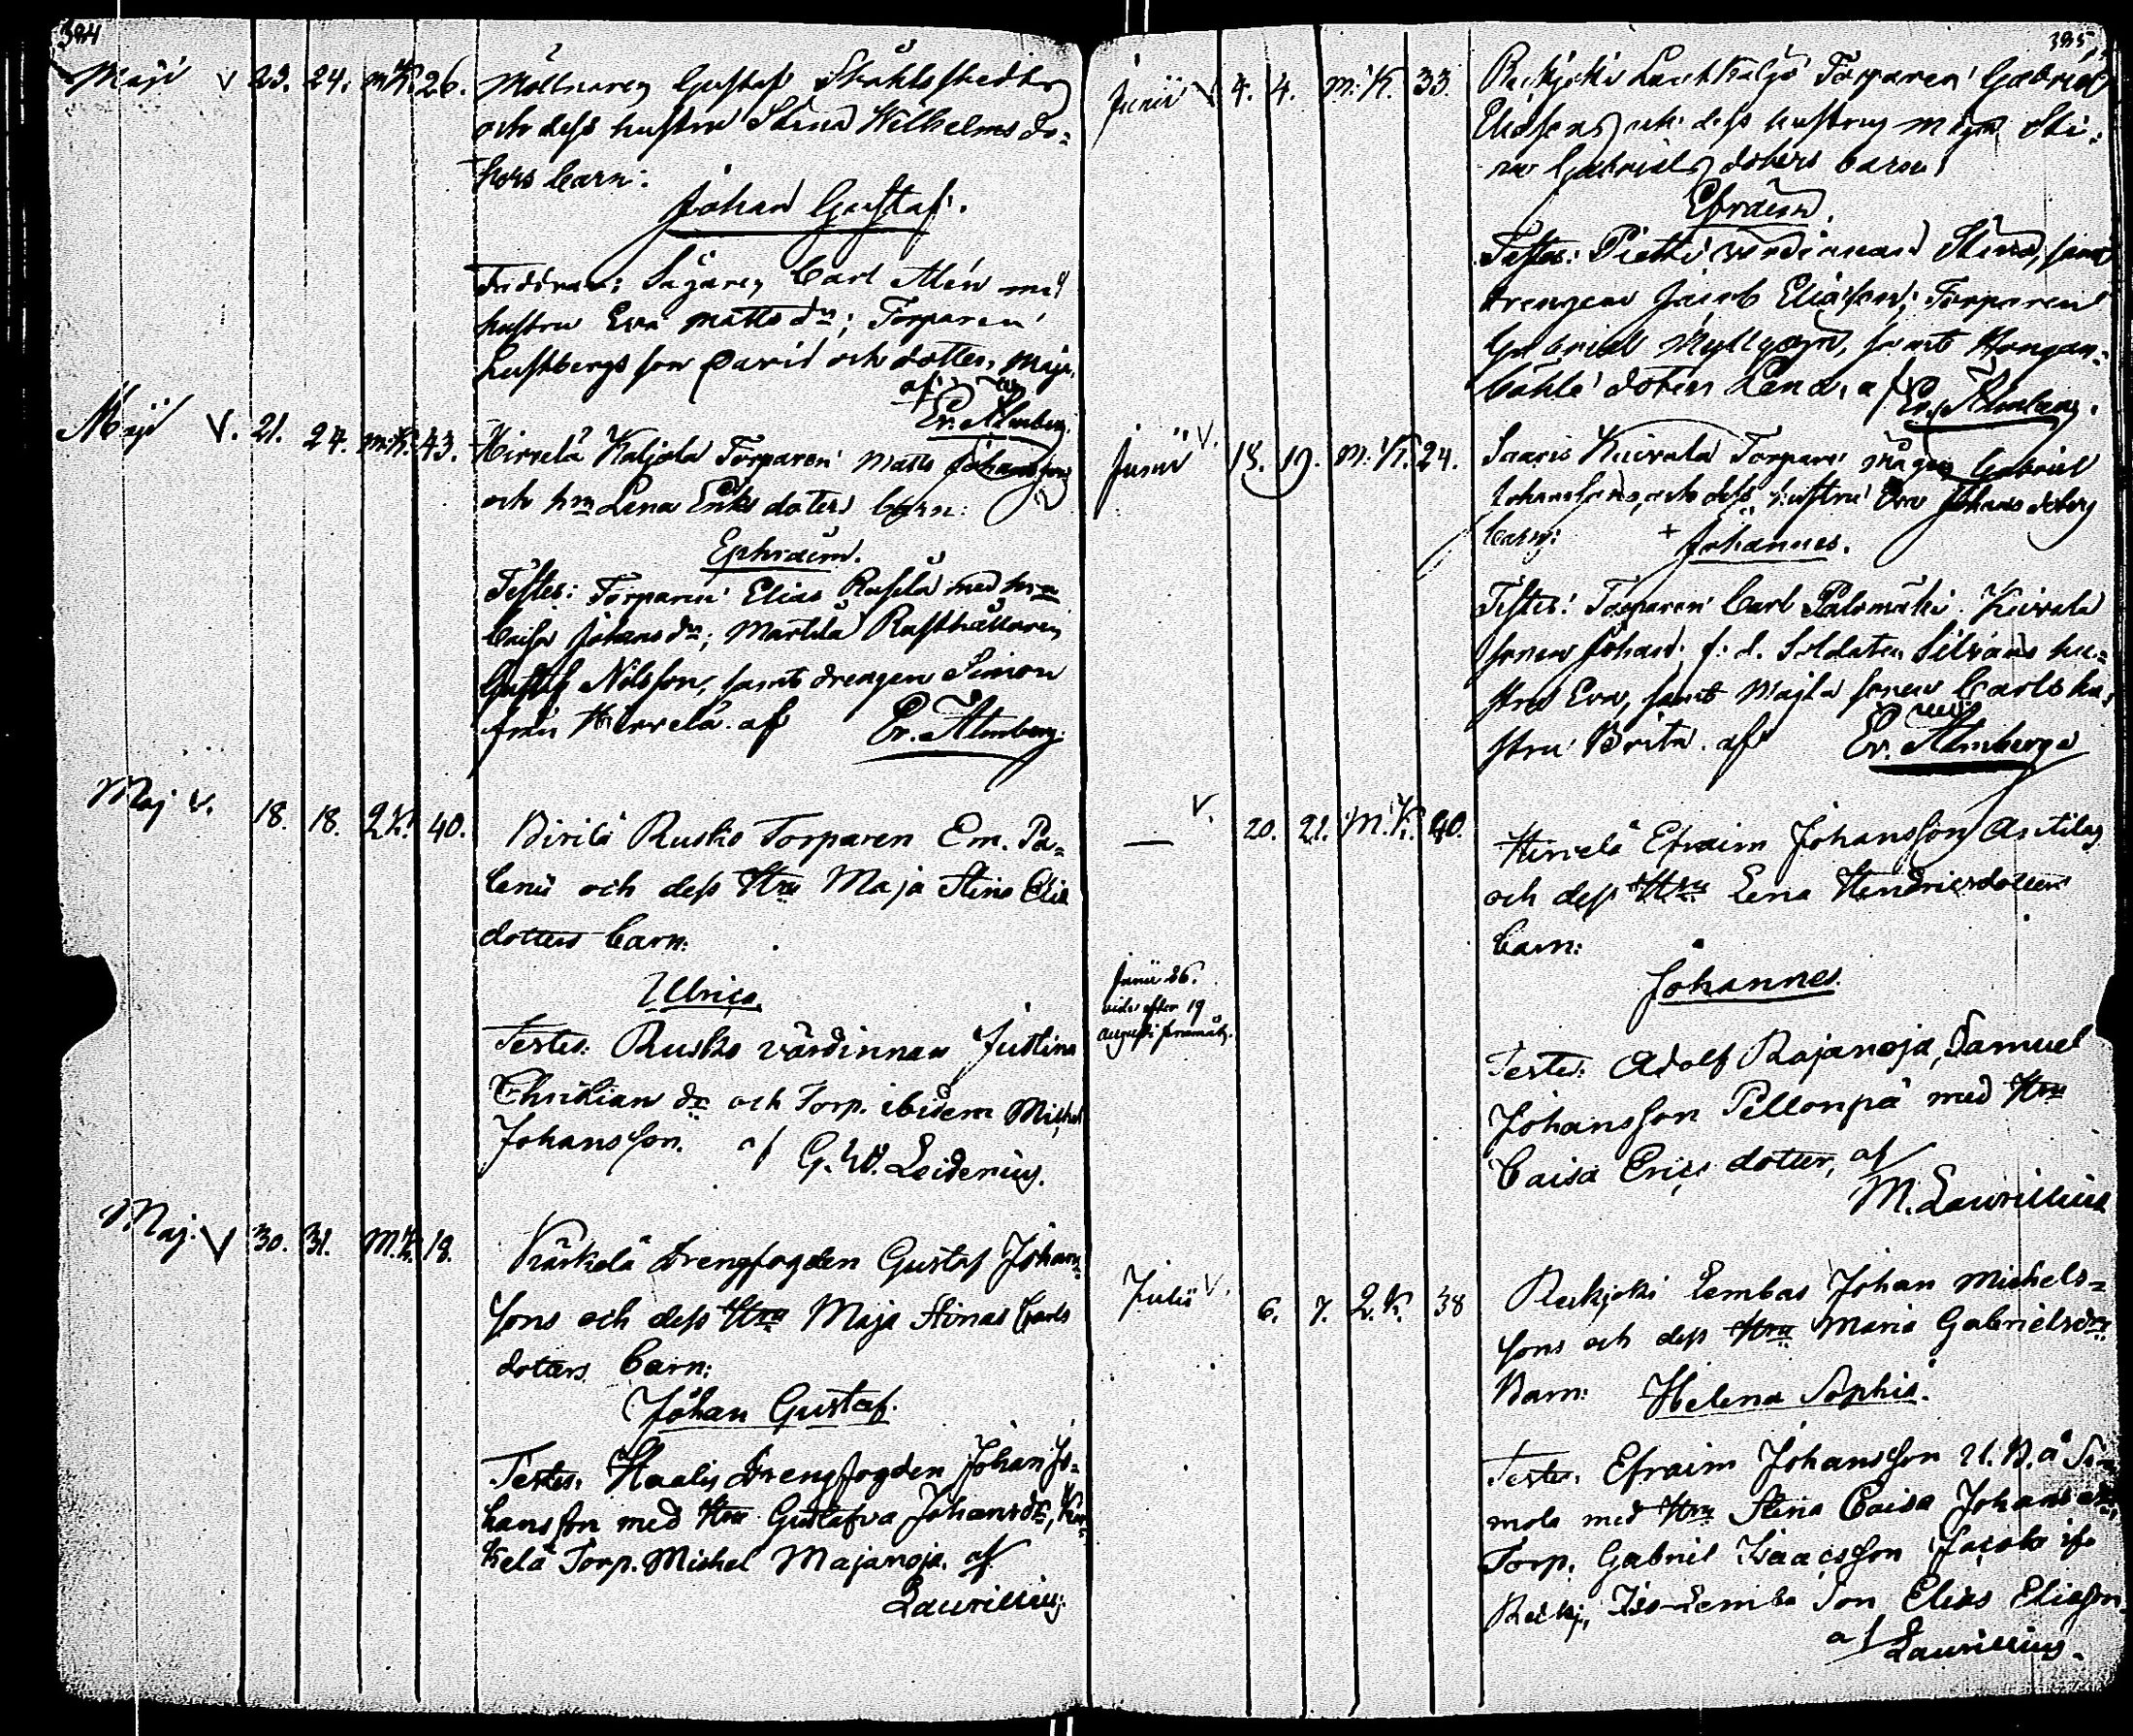 384
Maji V 23. 24. m.K. 26. Möllnaren Gustaf Ståhls
och dess hustru Stina Wilhelms do-
ters barn:
Johan Gustaf.
Carl Alén med
hustru Eva Matts dr; Torparen
son David och dotter, Maja.
af Er. Almberg.
Maji V. 21. 24. m.K. 43. Hirvelä Kaljola Torparen Matts Johansson
och hru Lena Eriks doters barn:
Ephraim.
Testes: Torparen Elias Rusila med hru
Caisa Johans dr; Marttila Rusthållaren
Gustaf Nilsson, samt drengen Simon
från Hirvelä af Er. Almberg.
Maj V. 18. 18. 2 K. 40. Birilä Rusko Torparen Em. Pa-
lenii och dess Hru Maja Stina Elia
dotters barn:
Ulrica
Testes: Rusko värdinnan Justina
Christian dr och Torp. ibidem Michel
Johansson. af G. W. Leidenius.
Maj. V 30. 31. M.K. 18. Kärkelä Drengfogden Gustaf Johan-
sons och dess Hru Maja Stinas Carls
dotters barn:
Johan Gustaf.
Testes: Haalis Drengfogden Johan Jo-
hansson med Hru Gustafva Johansdr, Kär-
kelä Torp. Michel Majanoja. af
Laurillius.
385
Junii V 4. 4. m.K. 33. Reckijoki Torparen Gabriel
Eliassons och dess hustru Maja Sti-
na Gabriels doters barn
Efraim.
Testes: värdinnan Stina, samt
drengen Jacob Eliasson; Torparen
Gabriel Myllyoja, samt
dotter Lena, af Er. Almberg.
Junii V. 18. 19. M.K. 24. Saaris Kuivala Torpare mågen Gabriel
Johanssons och dess hustru Eva Johans doters
barn: + Johannes.
Testes: Torparen Carl Palomäki. Kuivala
sonen Johan. f. d. Soldaten Silvans hu-
stru Eva, samt Majla sonen Carls hu-
stru Brita. af Er. Almberg
— V. 20. 21. M.K. 40. Hirvelä Efraim Johansson Antilas
och dess Hru Lena Hendricsdotters
barn:
Johannes.
Junii 26.
vide efter 19
Augusti
Testes: Adolf Rajanoja, Samuel
Johansson Pellonpä med Hru
Caisa Erics dotter, af
M. Laurillius
Julii V. 6. 7. 2.K. 38 Reckijoki Lembas Johan Michels-
sons och dess Hru Maria Gabrielsdrs
Barn: Helena Sophia.
Testes: Efraim Johansson U.B. å
mola med Hru Stina Caisa Johans dr,
Torp. Gabriel Isaacsson
Reckij. Iso-Lemba Son Elias Eliasson.
af Laurillius.